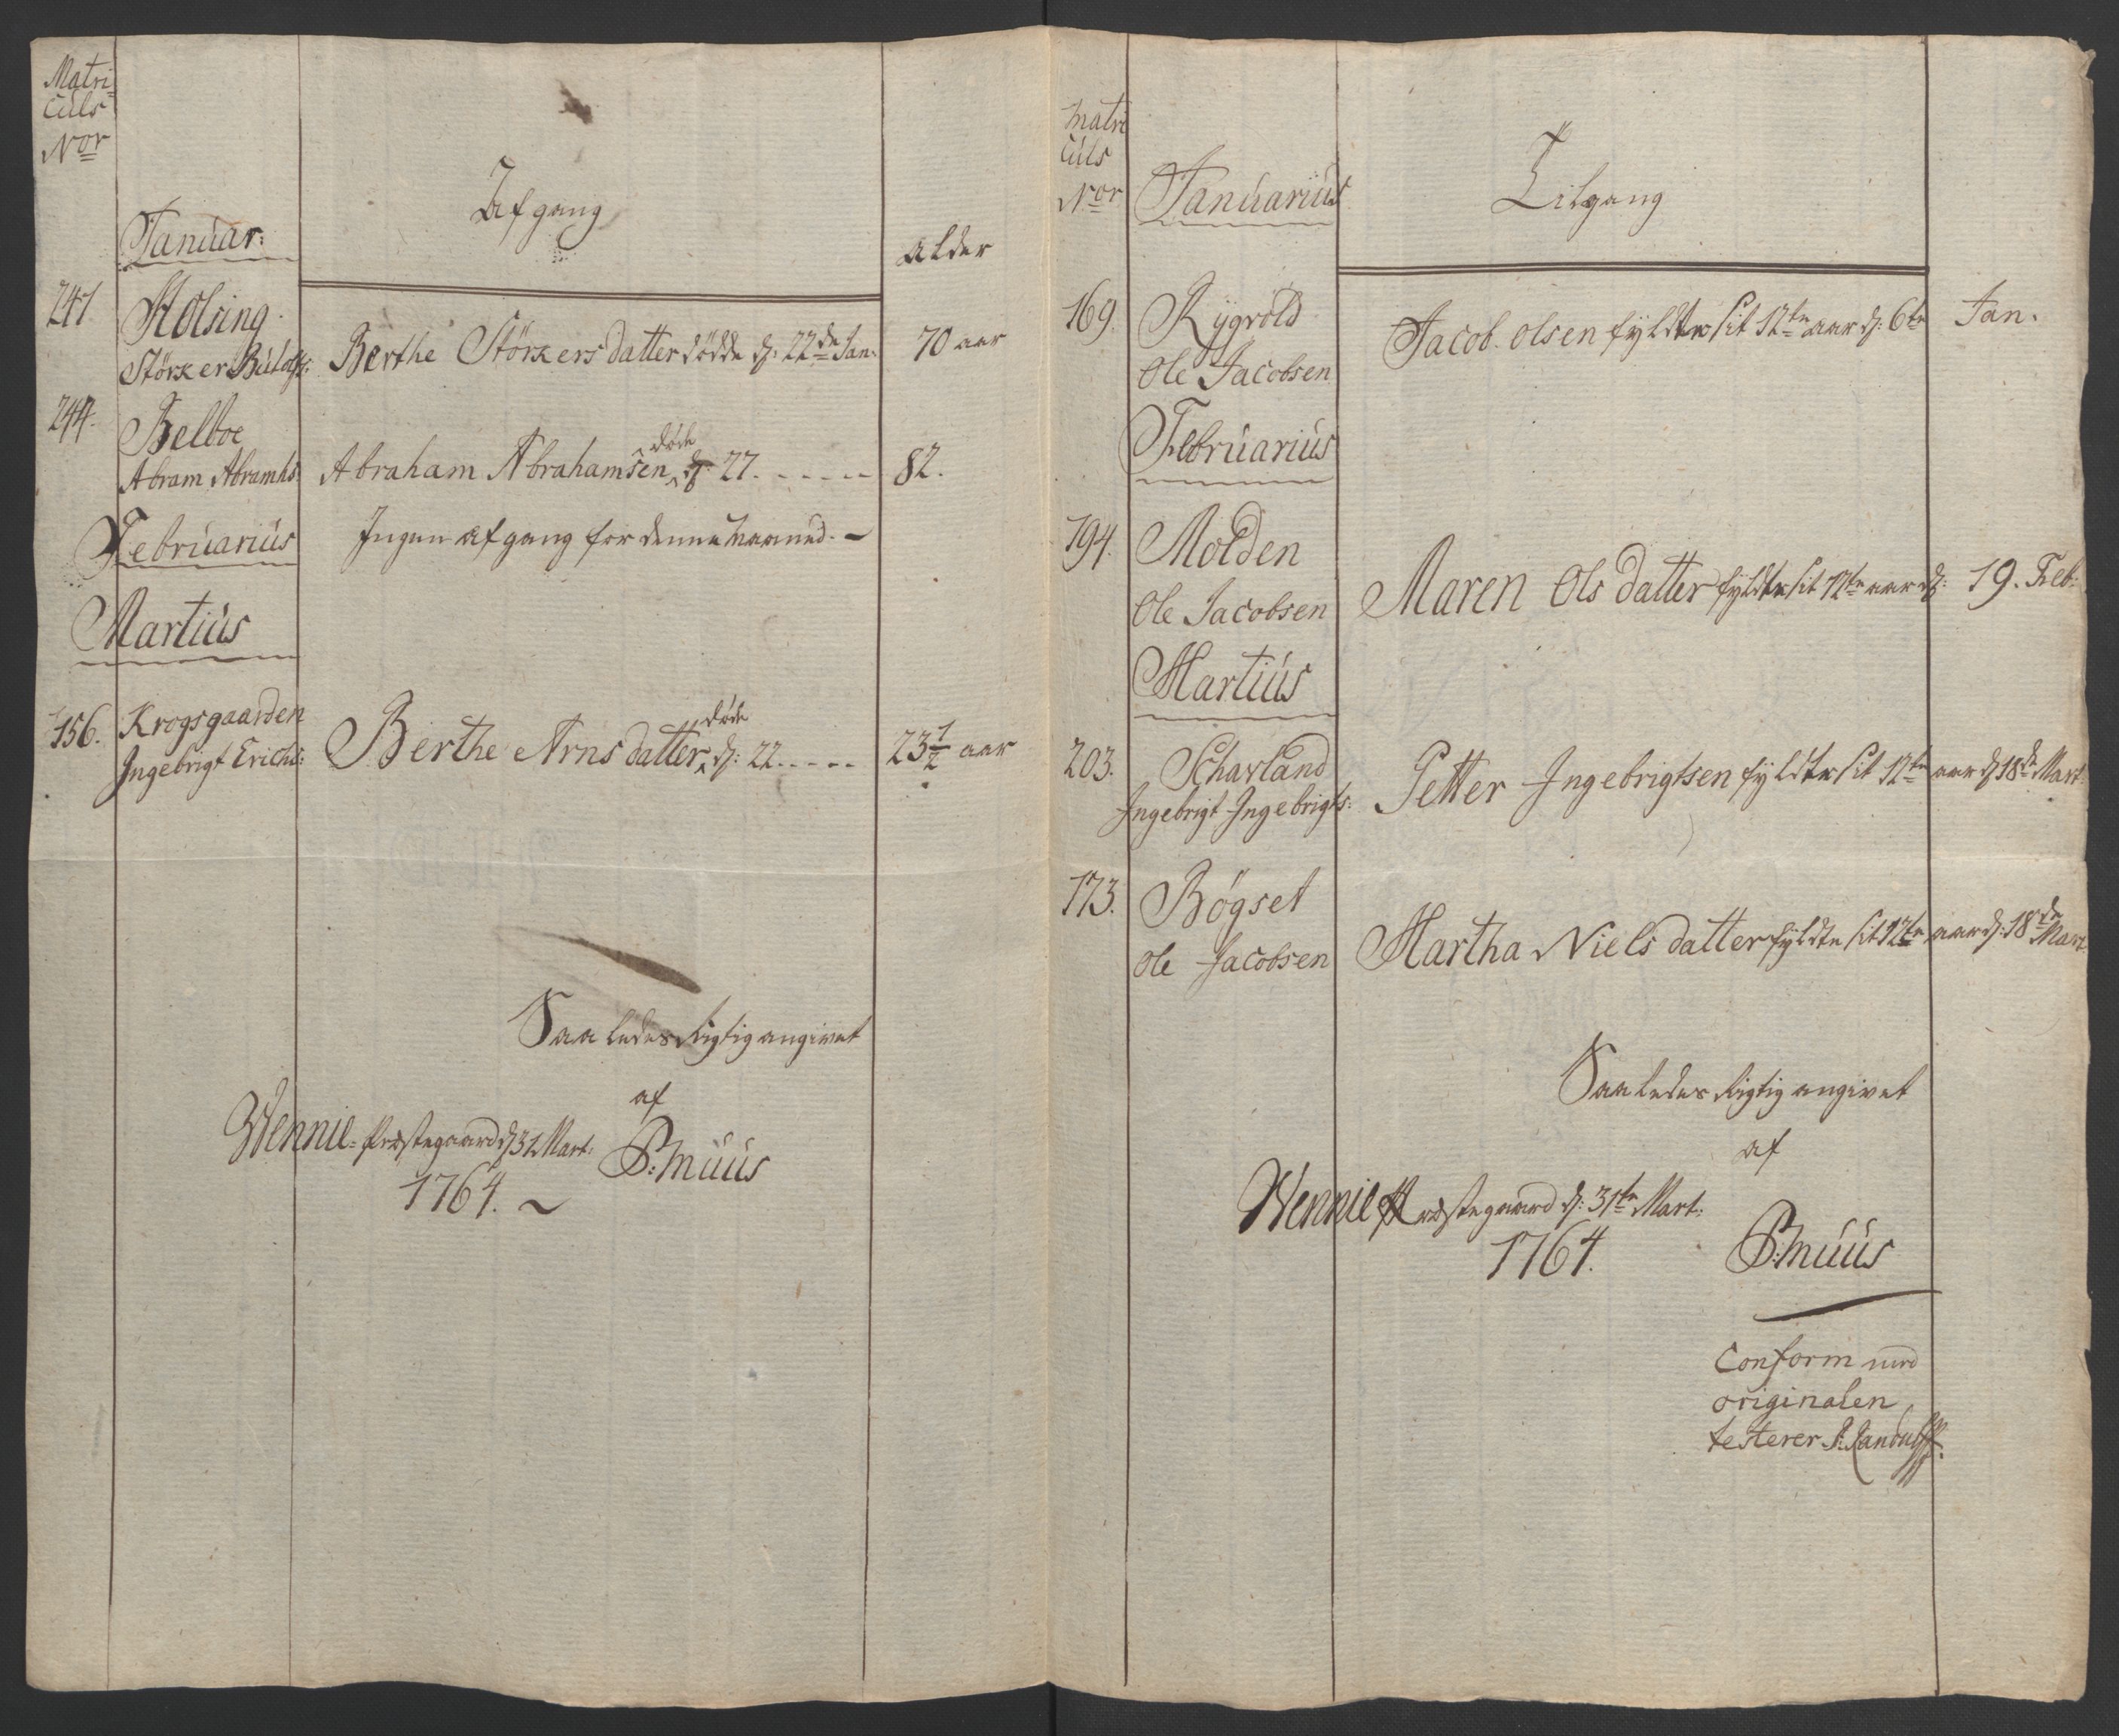 Matri-
culs
Nor
Afgang
Januar:
Alder
247
Holsing
Störker Bulofs:
Berthe Störkers datter dödde d: 22de Jan:
70 aar
244.
Belboe
Abram Abramhs:
Abraham Abrahamsen døde d: 27. - - - - -
82.
Februarius
Ingen afgang for denne Maaned. -
Martius
156.
Krogsgaarden
Ingebrigt Erichs:
Berthe Arns datter døde d: 22. - - - -
23 1/2 aar
Saaledes Rigtig angivet
af
Wennie-Præstegaard d 31 Mart:
P: Muus
1764. ~
Matri
culs
Nor
Januarius
Tilgang
169.
Rygvold
Ole Jacobsen
Jacob Olsen fyldte sit 12te aar d: 6te
Jan.
Februarius
194.
Molden
Ole Jacobsen
Maren Ols datter fyldte sit 12te aar d:
19. Feb:
Martius
203.
Scharland
Ingebrigt Ingebrigts:
Petter Ingebrigtsen fyldte sit 12te aar d 18de Mart:
173.
Bögset
Ole Jacobsen
Martha Niels datter fyldte sit 12te aar d: 18de Mart:
Saaledes Rigtig angivet
af
Wennie Præstegaard d: 31te Mart:
1764.
P: Muus
Conform med
originalen
testerer